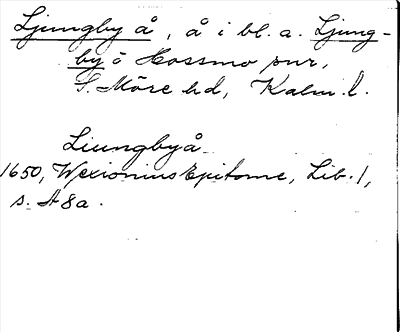 Ljungby å, å i bl. a. Ljung-
by o Hossmo snr,
S. Möre hd, Kalm. l.
Liungbyå
1650, Wexionius Epitome, Lib. 1,
s. A 8a.